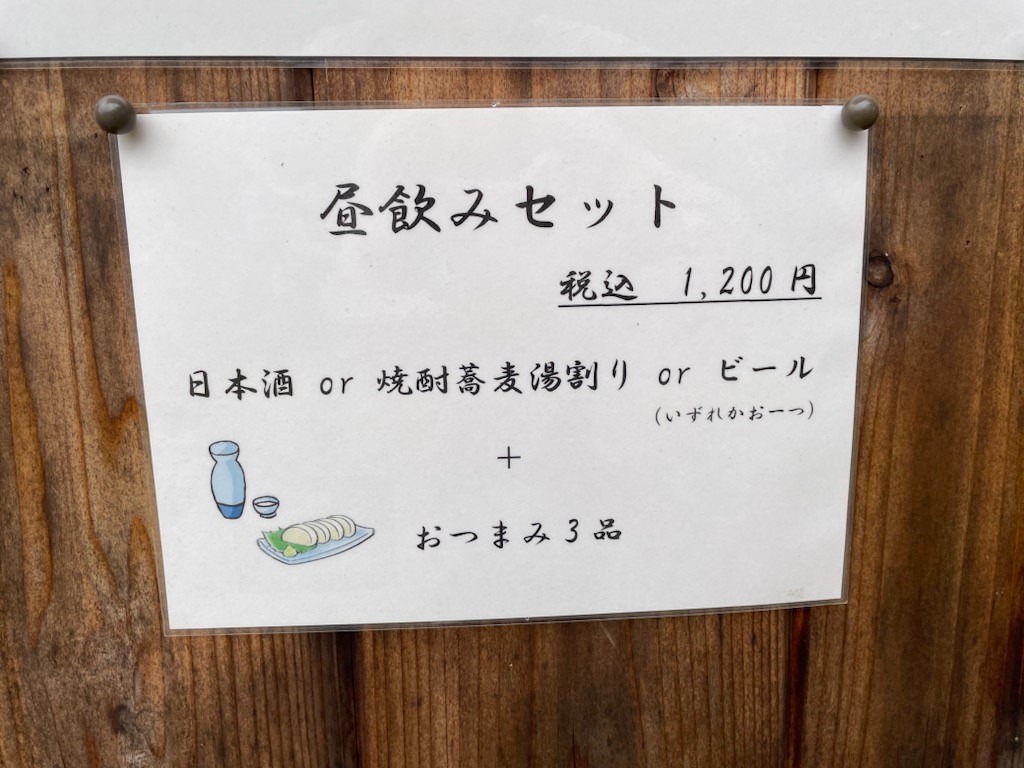 昼飲みセット
税込 1,200円
日本酒 or 焼酎蕎麦湯割り or ビール
(いずれかお一つ)
+
おつまみ3品